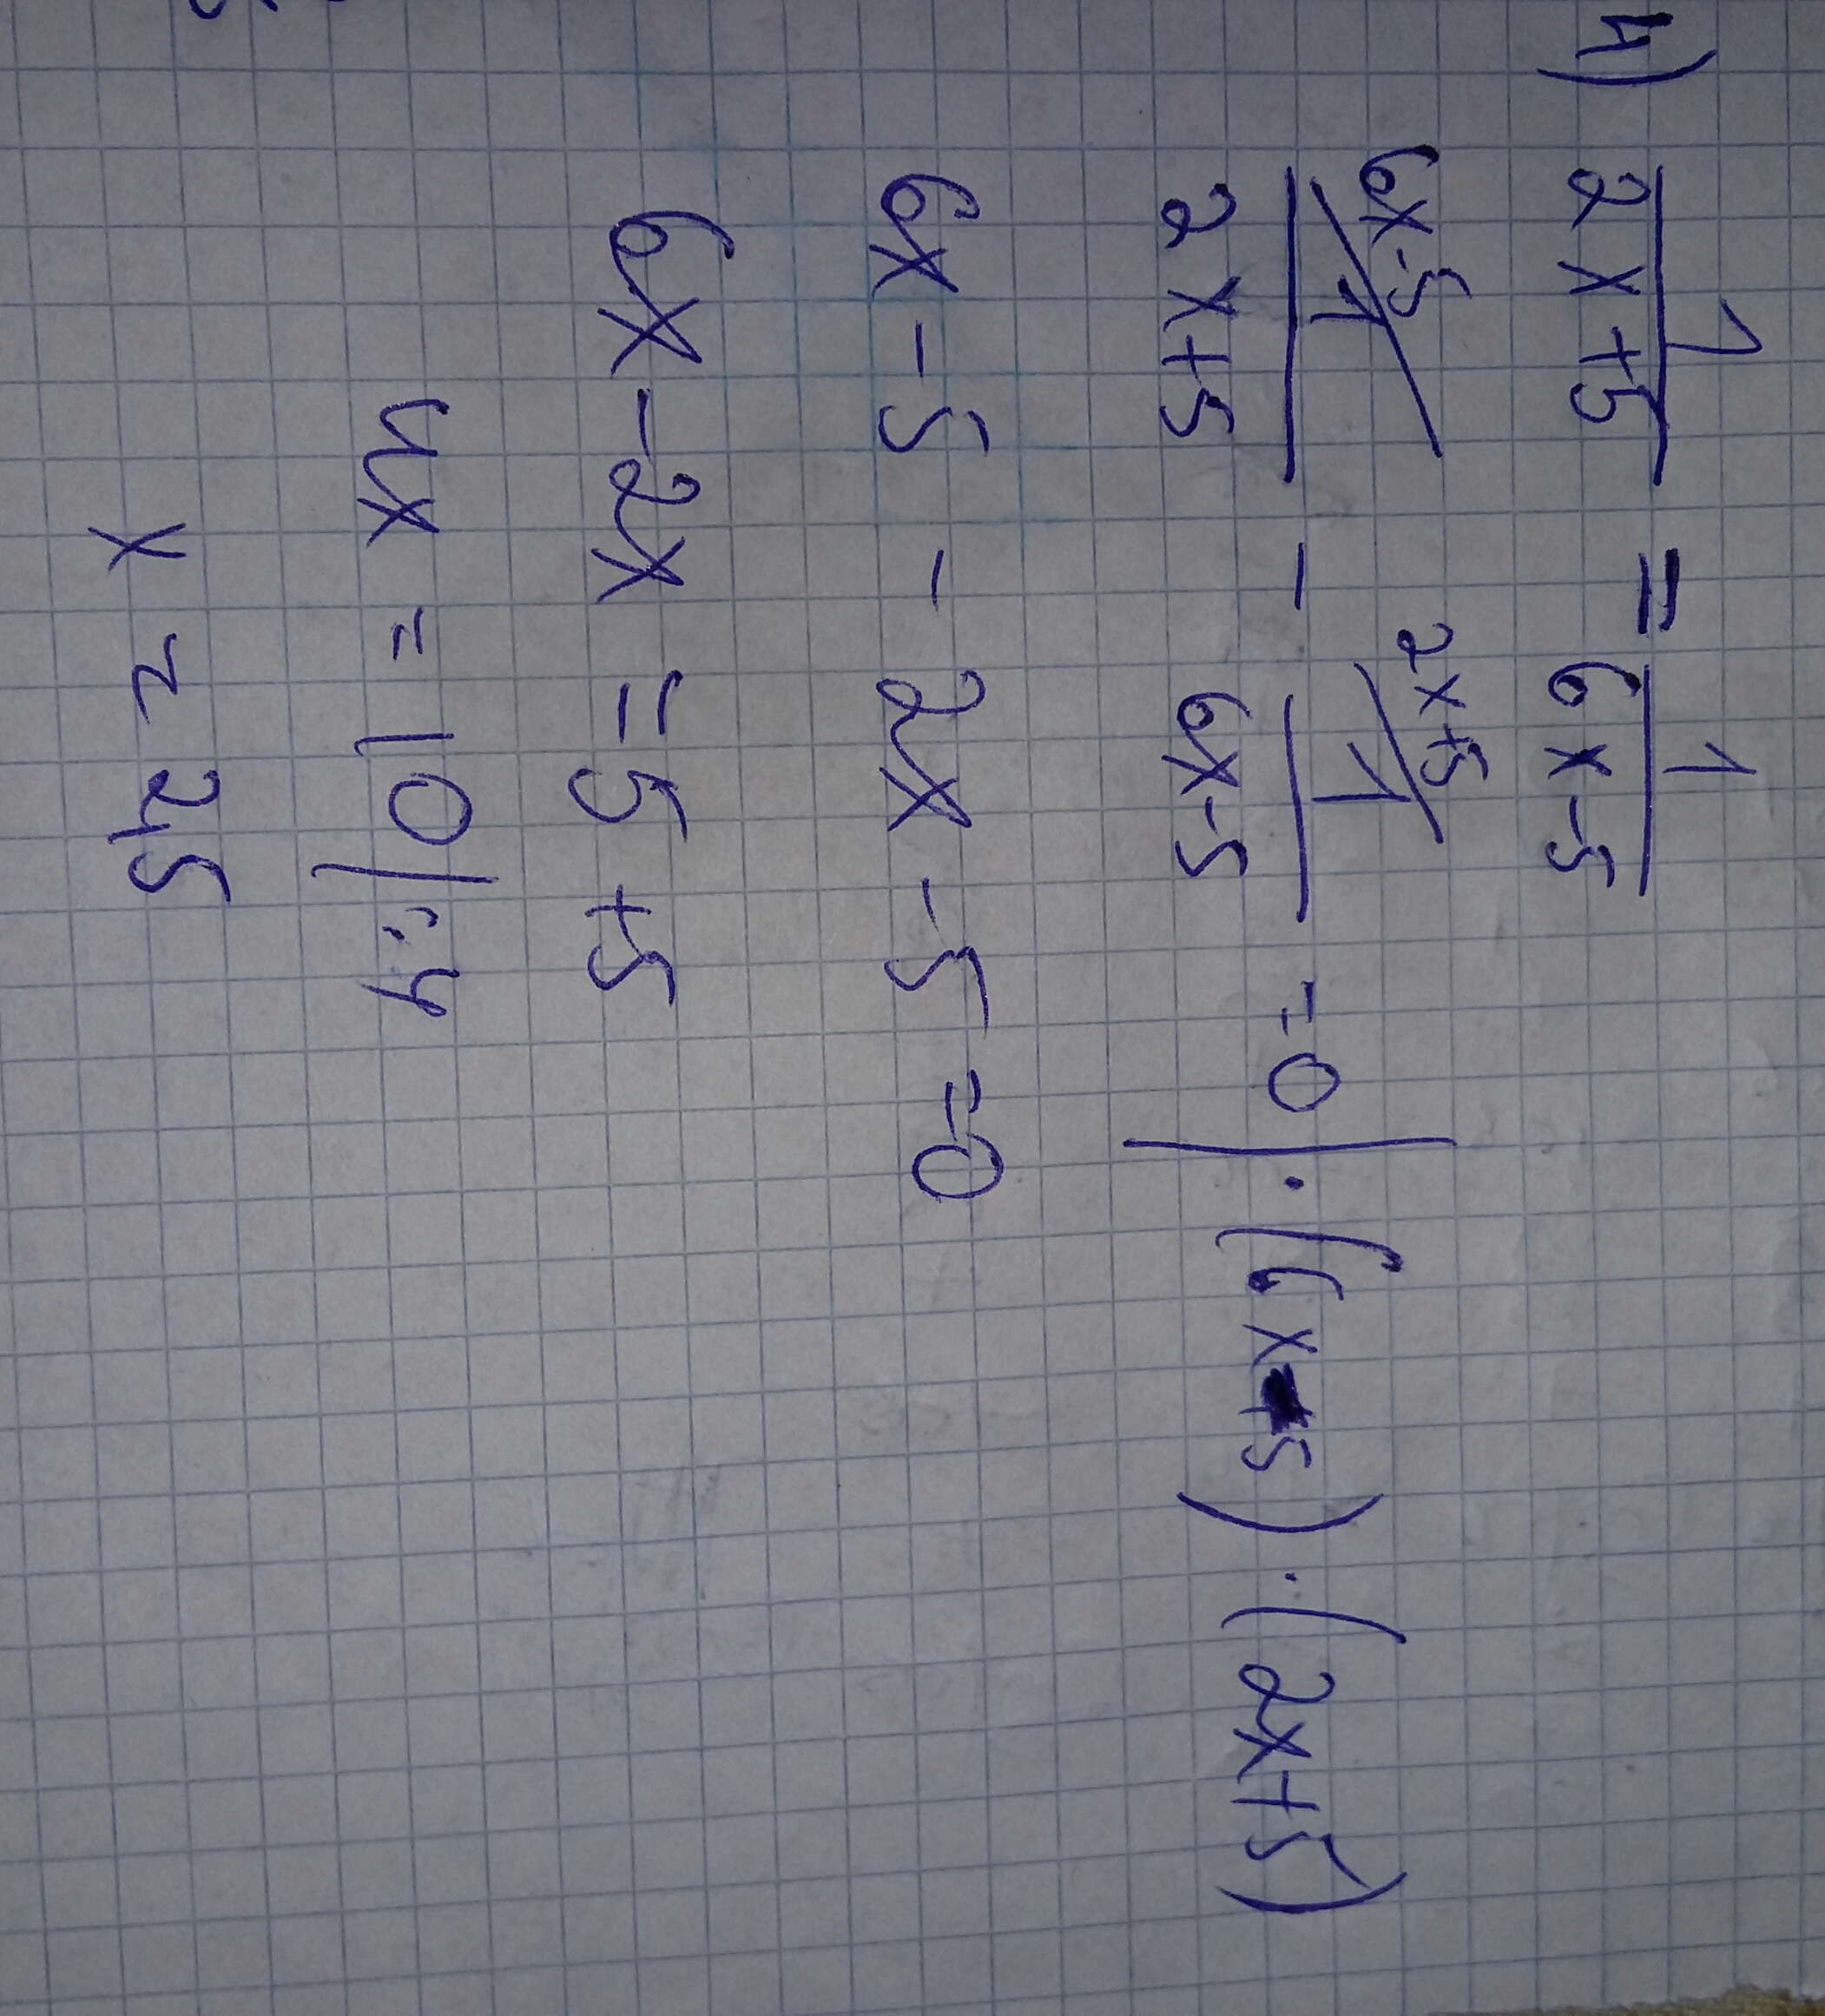 4) 1/(2x+5) = 1/(6x-5)
6x-5/ 1/(2x+5) - 2x+5/ 1/(6x-5) = 0 | · (6x-5) · (2x+5)
6x - 5 - 2x - 5 = 0
6x - 2x = 5 + 5
4x = 10 | : 4
x = 2,5